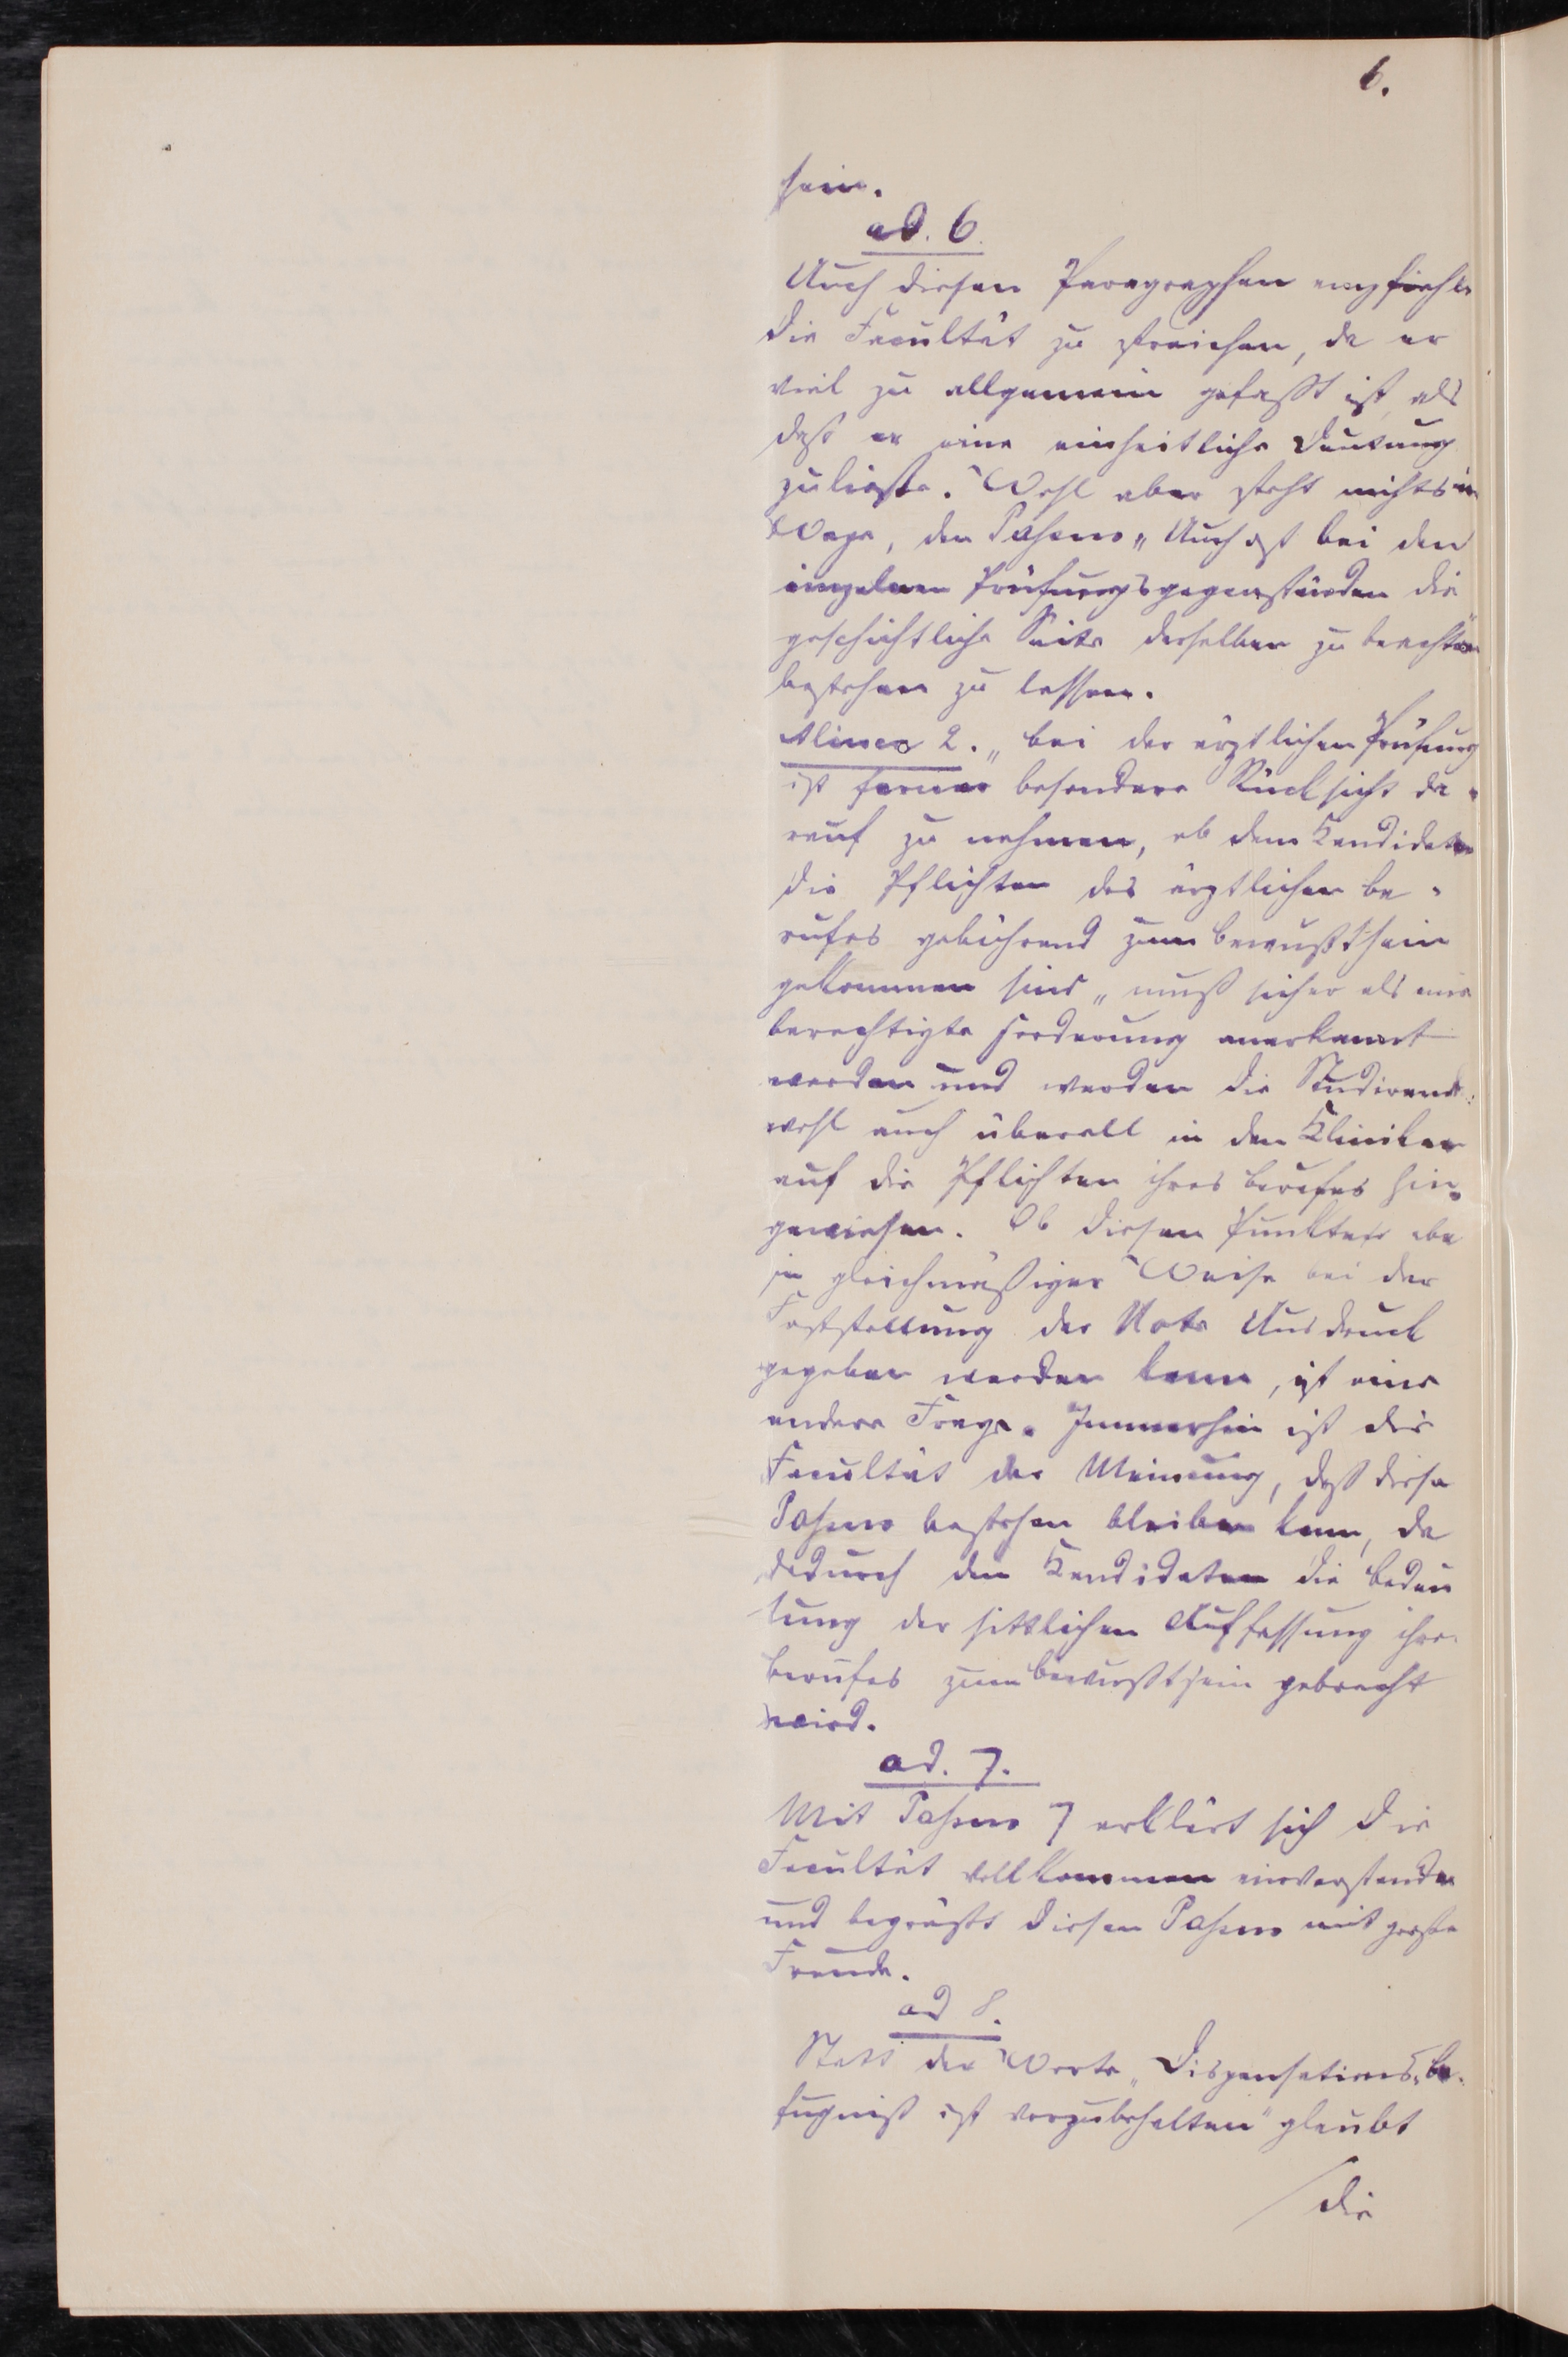 6.
sein.
ad. 6.
Auch diesen Paragraphen empfiehlt
die Facultät zu streichen, da er
viel zu allgemein gefaßt ist, als
daß er eine einheitliche Deutung
zuließe. Wohl aber steht nichts im
Wege, den Passus „Auch ist bei den
einzelnen Prüfungsgegenständen die
geschichtliche Seite derselben zu beachten"
bestehen zu lassen.
Alinea 2. „bei der ärztlichen Prüfung
ist ferner besondere Rücksicht da-
rauf zu nehmen, ob dem Kandidaten
die Pflichten des ärztlichen Be-
rufes gebührend zum Bewußtsein
gekommen sind" muß sicher als eine
berechtigte Forderung anerkannt
werden und werden die Studirenden
wohl auch überall in den Kliniken
auf die Pflichten ihres Berufes hin-
gewiesen. Ob diesen Punkten aber
in gleichmäßiger Weise bei der
Feststellung der Note Ausdruck
gegeben werden kann, ist eine
andere Frage. Immerhin ist die
Facultät der Meinung, daß dieser
Passus bestehen bleiben kann, da
dadurch den Kandidaten die Bedeu
tung der sittlichen Auffassung ihres
Berufes zum Bewußtsein gebracht
wird.
ad. 7.
Mit Passus 7 erklärt sich die
Facultät vollkommen einverstanden
und begrüßt diesen Passus mit großer
Freude.
ad 8.
Statt der Worte „Dispensations-be-
fugniß ist vorzubehalten" glaubt
die